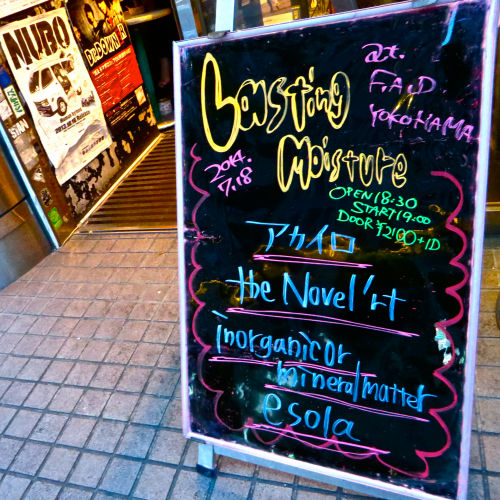 NUBO
Lasting
Moisture
at.
F.A.D
YOKOHAMA
2014.
7.18
OPEN 18:30
START 19:00
DOOR ¥2100+1D
アカイロ
the Novel'rt
inorganic or
mineral matter
esola